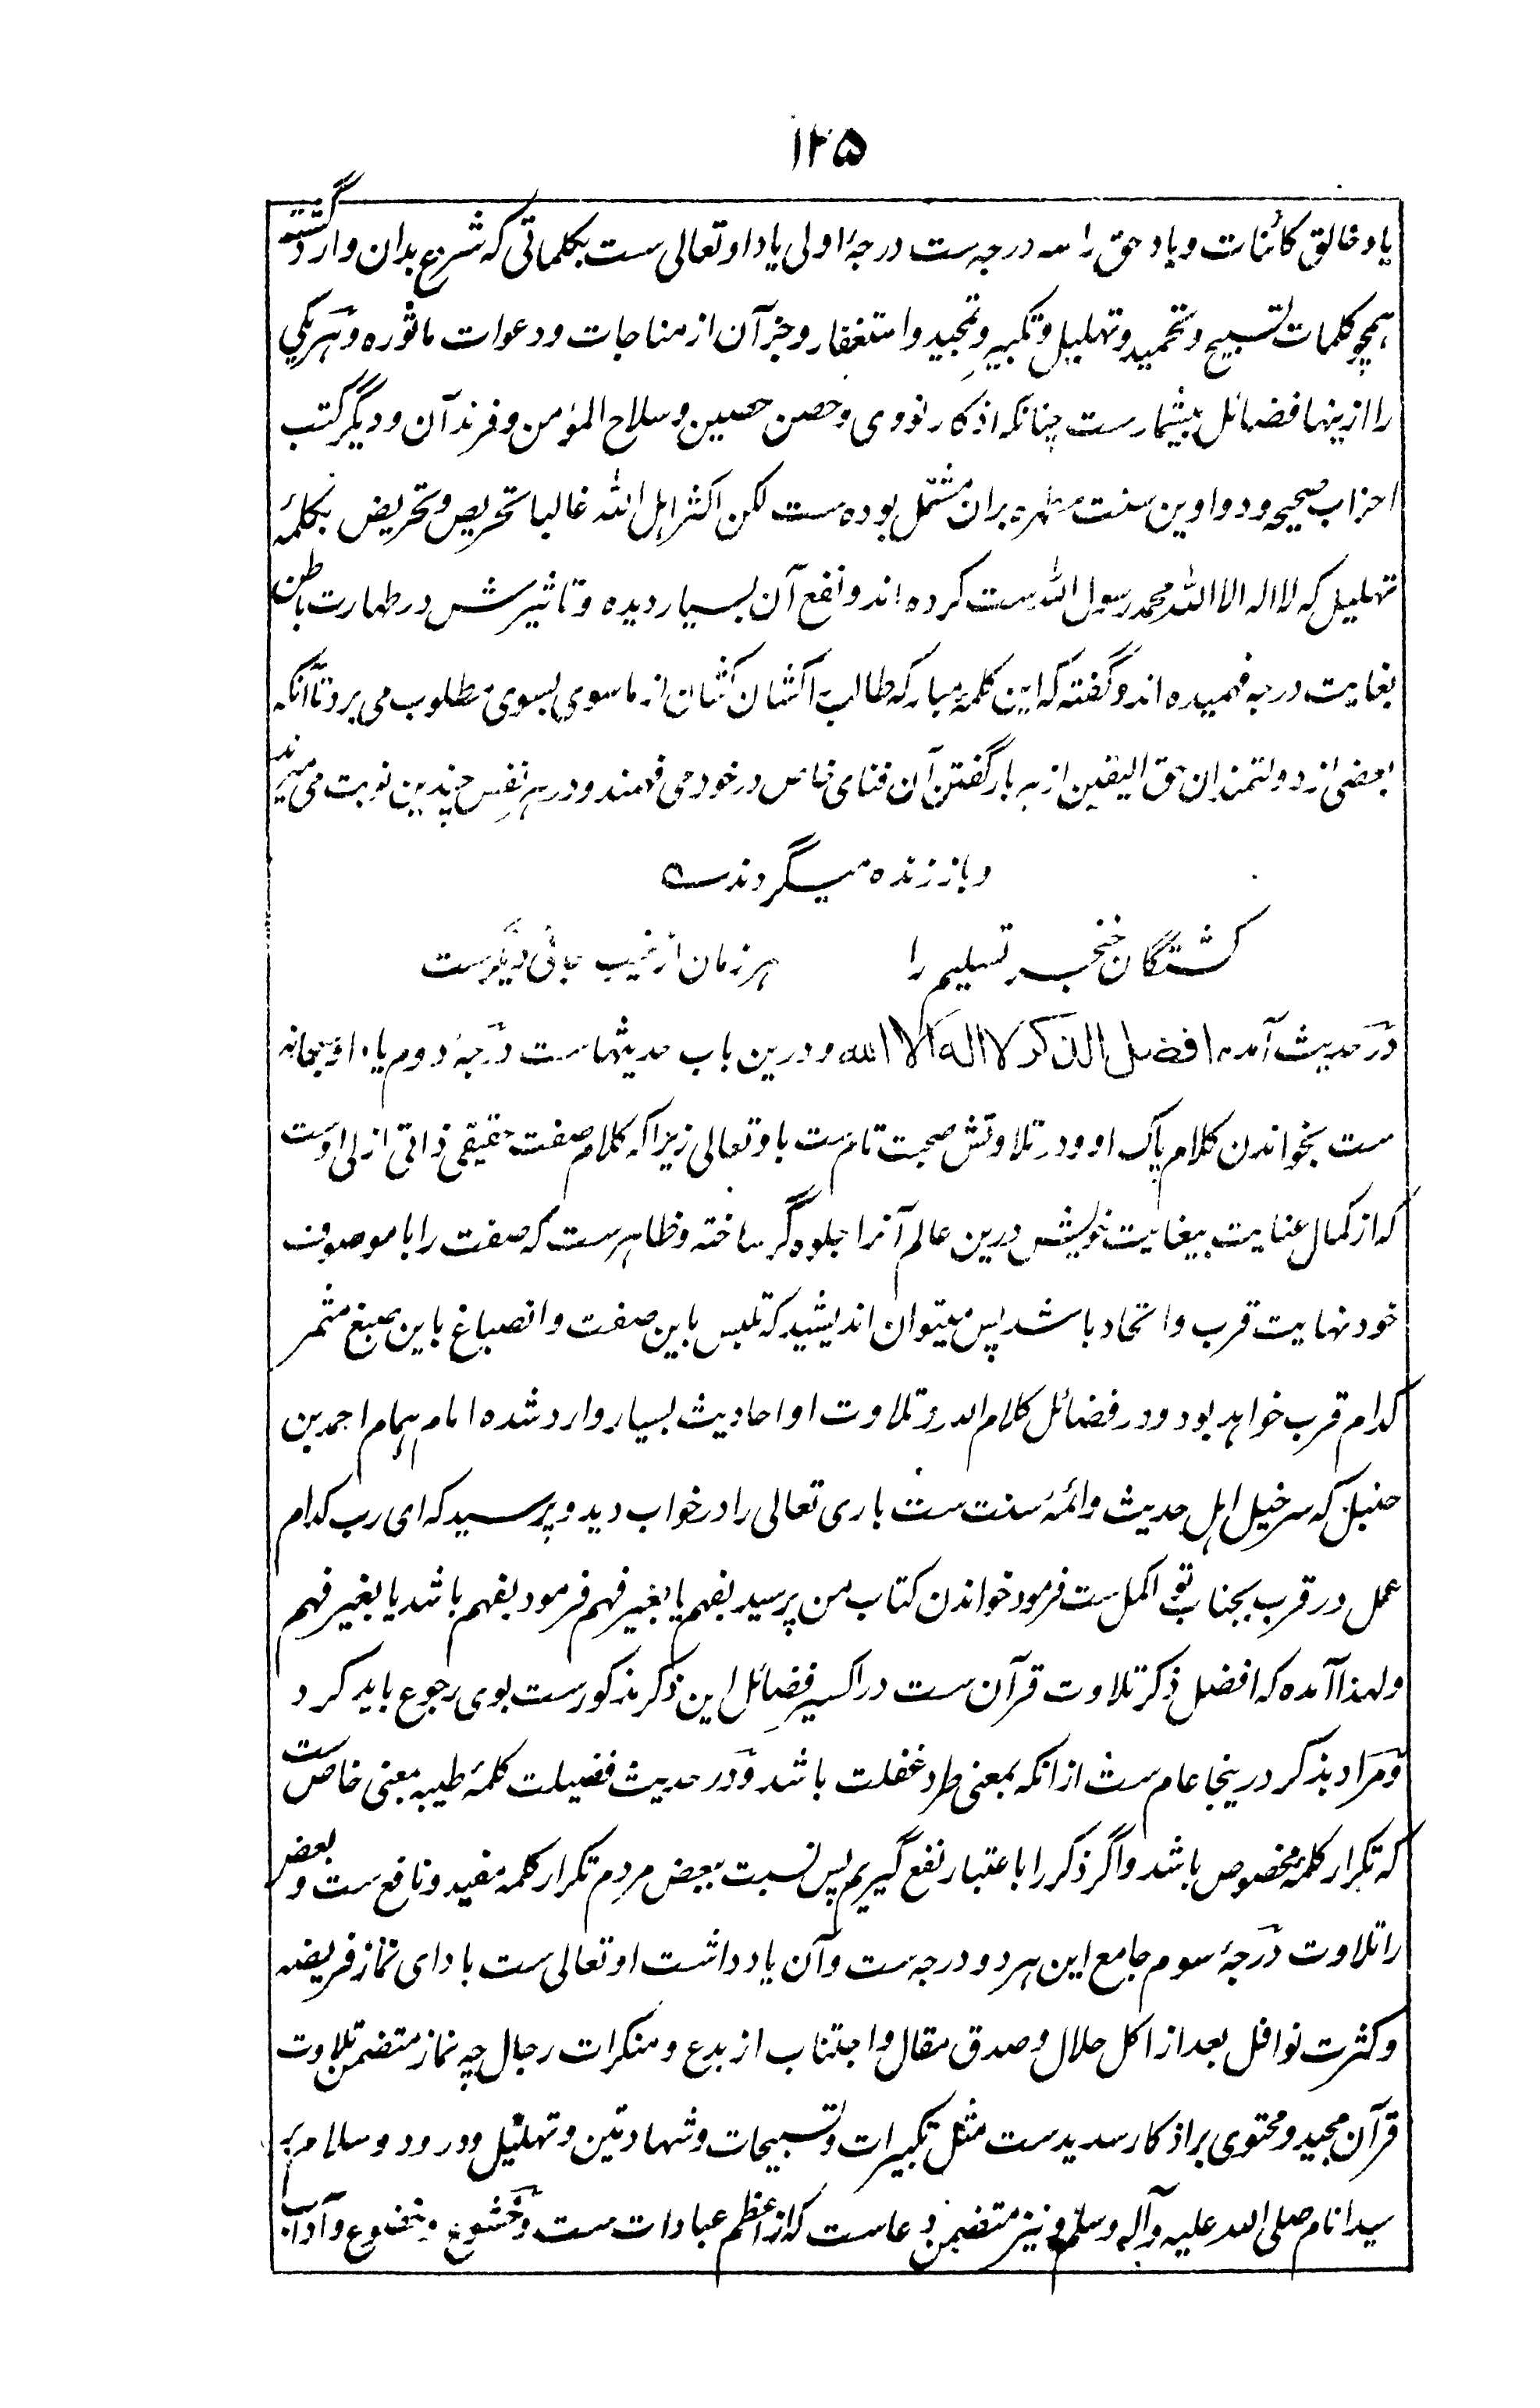 ۱۲۵
یاد خالق کائنات و یاد حق را سه درجه ست درجۂ اولی یاد او تعالی ست بکلماتی که شرع بدان وارد گشته
همچو کلمات تسبیح و تحمید و تهلیل و تکبیر و تمجید و استغفار و جز آن از مناجات و دعوات ماثوره و هر یکی
را ازینها فضائل بیشمارست چنانکه اذکار نووی و حصن حصین و سلاح المؤمن و فرند آن و دیگر کتب
احزاب صحیحه و دواوین سنت مطهره بران مشتمل بوده ست لکن اکثر اهل الله غالبا تحریص و تحریض بکلمۂ
تهلیل که لا اله الا الله محمد رسول الله ست کرده اند و نفع آن بسیار دیده و تاثیرش در طهارت باطن
بغایت درجه فهمیده اند و گفته که این کلمۂ مبارکه طالب را کشان کشان از ماسوی بسوی مطلوب می برد تا آنکه
بعضی از دولتمندان حق الیقین از هر بار گفتن آن فنای خاص در خود می فهمند و در هر نفس چندین نوبت می میرند
و باز زنده میگردند ے
کشتگان خنجر تسلیم را هر زمان از غیب جانی دیگرست
در حدیث آمده افضل الذکر لا اله الا الله و درین باب حدیثهاست درجۂ دوم یاد او سبحانه
ست بخواندن کلام پاک او و در تلاوتش صحبت تام ست با و تعالی زیرا که کلام صفت حقیقی ذاتی ازلی اوست
که از کمال عنایت بیغایت خویش درین عالم آنرا جلوه گر ساخته و ظاهرست که صفت را با موصوف
خود نهایت قرب و اتحاد باشد پس میتوان اندیشید که تلبس باین صفت و انصباغ باین صبغ مثمر
کدام قرب خواهد بود و در فضائل کلام الله و تلاوت او احادیث بسیار وارد شده امام همام احمد بن
حنبل که سرخیل اهل حدیث و ائمۂ سنت ست باری تعالی را در خواب دید و پرسید که ای رب کدام
عمل در قرب بجناب تو اکمل ست فرمود خواندن کتاب من پرسید بفهم یا بغیر فهم فرمود بفهم باشد یا بغیر فهم
و لهذا آمده که افضل ذکر تلاوت قرآن ست در اکسیر فضائل این ذکر مذکورست بوی رجوع باید کرد
و مراد بذکر درینجا عام ست از انکه بمعنی طرد غفلت باشد و در حدیث فضیلت کلمۂ طیبه معنی خاص ست
که تکرار کلمۂ مخصوص باشد و اگر ذکر را باعتبار نفع گیریم پس نسبت ببعض مردم تکرار کلمه مفید و نافع ست و بعض
را تلاوت درجۂ سوم جامع این هر دو درجه ست و آن یادداشت او تعالی ست با دای نماز فریضه
و کثرت نوافل بعد از اکل حلال و صدق مقال و اجتناب از بدع و منکرات رجال چه نماز متضمن تلاوت
قرآن مجید و محتوی بر اذکار سدیدست مثل تکبیرات و تسبیحات و شهادتین و تهلیل و درود و سلام بر
سید انام صلی الله علیه و آله وسلم و نیز متضمن دعاست که از اعظم عبادات ست و خشوع و خضوع و آداب